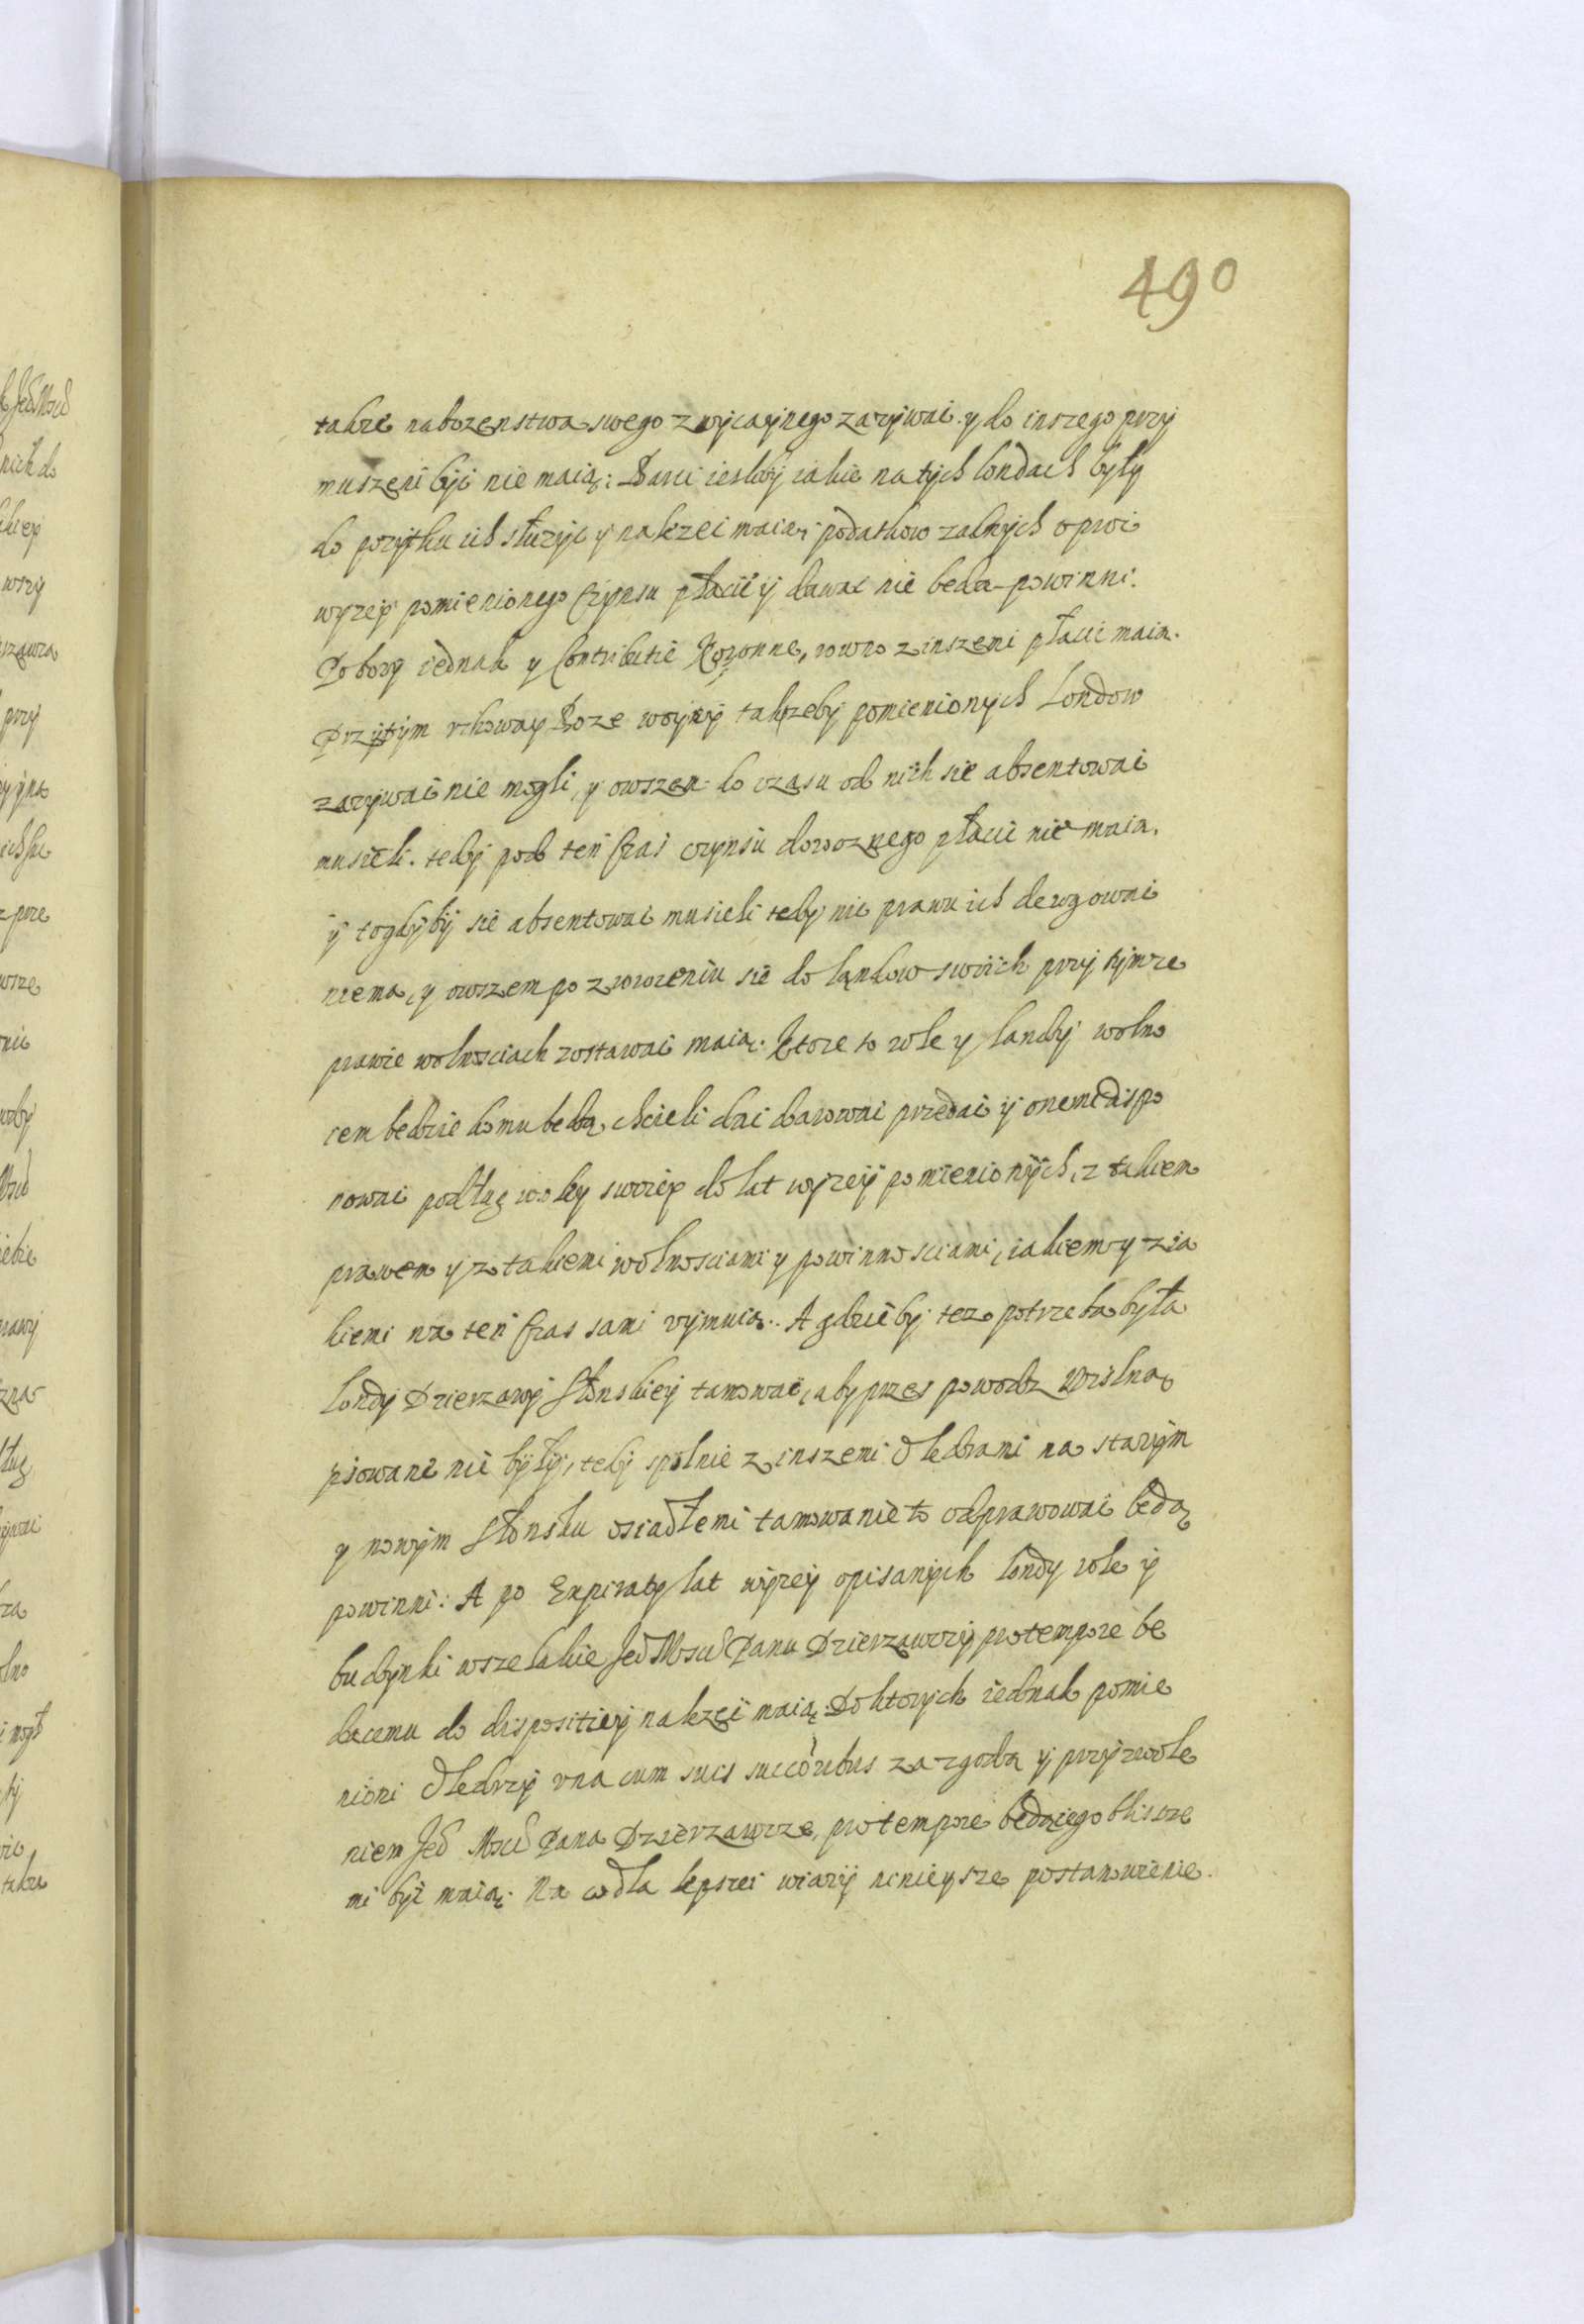 490
takze nabozenstwa swego zwÿcaÿnego zazÿwac y do inszego przÿ
muszeni bÿc nie maią: Barci iesliby iakie na tÿch Londach były
do pozÿtku ich służÿc ÿ nalezec maią, podatkow zadnÿch oproc
wyzeÿ pomienionego Czÿnsu płacic ÿ dawac nie beda powinni.
Pobory iednak y Contributie Koronne, rowno z inszemi płacic maia.
Przÿtÿm uchoway Boze woÿnÿ takzeby pomienionÿch Londow
zazÿwac nie mogli, y owszem do czasu od nich sie absentowac
musieli. tedÿ pod ten Czas czÿnsu dorocznego płacic nie maia,
ÿ to gdÿbÿ sie absentowac musieli tedÿ nic prawu ich derogowac
niema, y owszem po zwroceniu sie do Lądow swoich przÿ tÿmze
prawie wolnosciach zostawac maią. Ktore to role y landÿ wolno
iem bedzie komu bedą chcieli dac darowac przedac ÿ onemi dispo
nowac podług woley swoieÿ do lat wÿzeÿ pomienionÿch, z takiem
prawem y z takiemi wolnosciami y powinnosciami, iakiem y z ia
kiemi na ten Czas sami uÿmuią. A gdzie by tez potrzeba była
Londÿ Dzierzawÿ Słonskieÿ tamowac, aby przes powodz Wislną
psowane nie bÿłÿ, tedÿ spolnie z inszemi Oledrami na starÿm
y nowÿm Słonsku osiadłemi tamowanie to odprawowac będą
powinni: A po Expiratÿ lat wÿzeÿ opisanÿch Londy role ÿ
budÿnki wszelakie Jeo Mosci Panu Dzierzawczÿ pro tempore be
dącemu do dispositieÿ nalezec maią. Do ktorÿch iednak pomie
nioni Oledrzÿ una cum suis succorubus za zgodą ÿ przÿzwole
niem Jeo Mosci Pana Dzierzawcze, pro tempore będącego bliszze
mi bÿc maią. Na co dla lepszei wiarÿ ninieÿsze postanowienie.